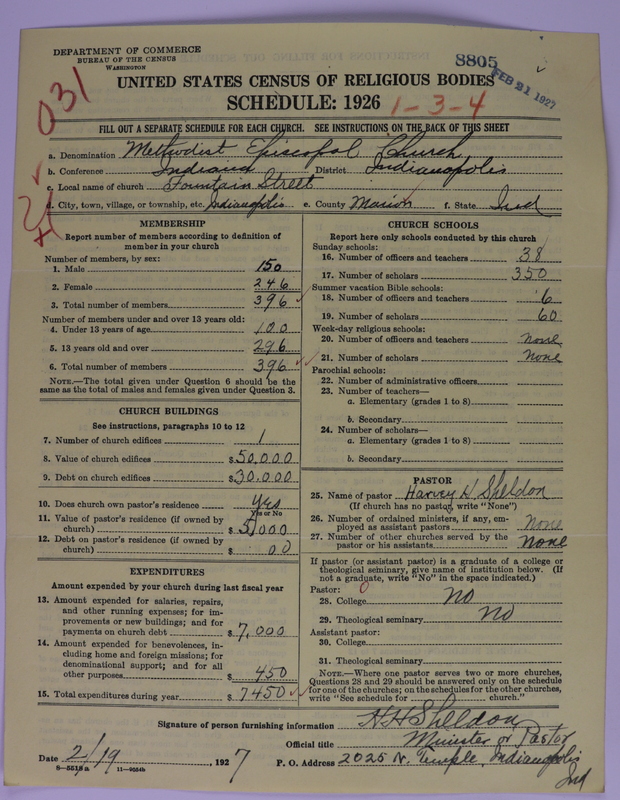 DEPARTMENT OF COMMERCE
BUREAU OF THE CENSUS
WASHINGTON
8805
FEB 21 1927
031
UNITED STATES CENSUS OF RELIGIOUS BODIES
SCHEDULE: 1926
1-3-4
FILL OUT A SEPARATE SCHEDULE FOR EACH CHURCH. SEE INSTRUCTIONS ON THE BACK OF THIS SHEET
a. Denomination Methodist Episcopal Church
b. Conference Indiana District Indianapolis
c. Local name of church Fountain Street
d. City, town, village, or township, etc. Indianapolis e. County Marion f. State Ind
MEMBERSHIP
Report number of members according to definition of
member in your church
Number of members, by sex:
1. Male 150
2. Female 246
3. Total number of members 396
Number of members under and over 13 years old:
4. Under 13 years of age 100
5. 13 years old and over 296
6. Total number of members 396
NOTE.—The total given under Question 6 should be the
same as the total of males and females given under Question 3.
CHURCH BUILDINGS
See instructions, paragraphs 10 to 12
7. Number of church edifices 1
8. Value of church edifices $50,000
9. Debt on church edifices $30,000
10. Does church own pastor's residence yes
Yes or No
11. Value of pastor's residence (if owned by
church) $5,000
12. Debt on pastor's residence (if owned by
church) $ 00
EXPENDITURES
Amount expended by your church during last fiscal year
13. Amount expended for salaries, repairs,
and other running expenses; for im-
provements or new buildings; and for
payments on church debt $7,000
14. Amount expended for benevolences, in-
cluding home and foreign missions; for
denominational support; and for all
other purposes $ 450
15. Total expenditures during year $ 7450
CHURCH SCHOOLS
Report here only schools conducted by this church
Sunday schools:
16. Number of officers and teachers 38
17. Number of scholars 350
Summer vacation Bible schools:
18. Number of officers and teachers 6
19. Number of scholars 60
Week-day religious schools:
20. Number of officers and teachers none
21. Number of scholars none
Parochial schools:
22. Number of administrative officers
23. Number of teachers—
a. Elementary (grades 1 to 8)
b. Secondary
24. Number of scholars—
a. Elementary (grades 1 to 8)
b. Secondary
PASTOR
25. Name of pastor Harvey H. Sheldon
(If church has no pastor, write "None")
26. Number of ordained ministers, if any, em-
ployed as assistant pastors None
27. Number of other churches served by the
pastor or his assistants None
If pastor (or assistant pastor) is a graduate of a college or
theological seminary, give name of institution below. (If
not a graduate, write "No" in the space indicated.)
Pastor: 0
28. College no
29. Theological seminary no
Assistant pastor:
30. College
31. Theological seminary
NOTE.—Where one pastor serves two or more churches,
Questions 28 and 29 should be answered only on the schedule
for one of the churches; on the schedules for the other churches,
write "See schedule for church."
Signature of person furnishing information H H Sheldon
Official title Minister or Pastor
Date 2/19, 1927 P. O. Address 2025 N. Temple, Indianapolis
Ind
8—5518a 11—9034b